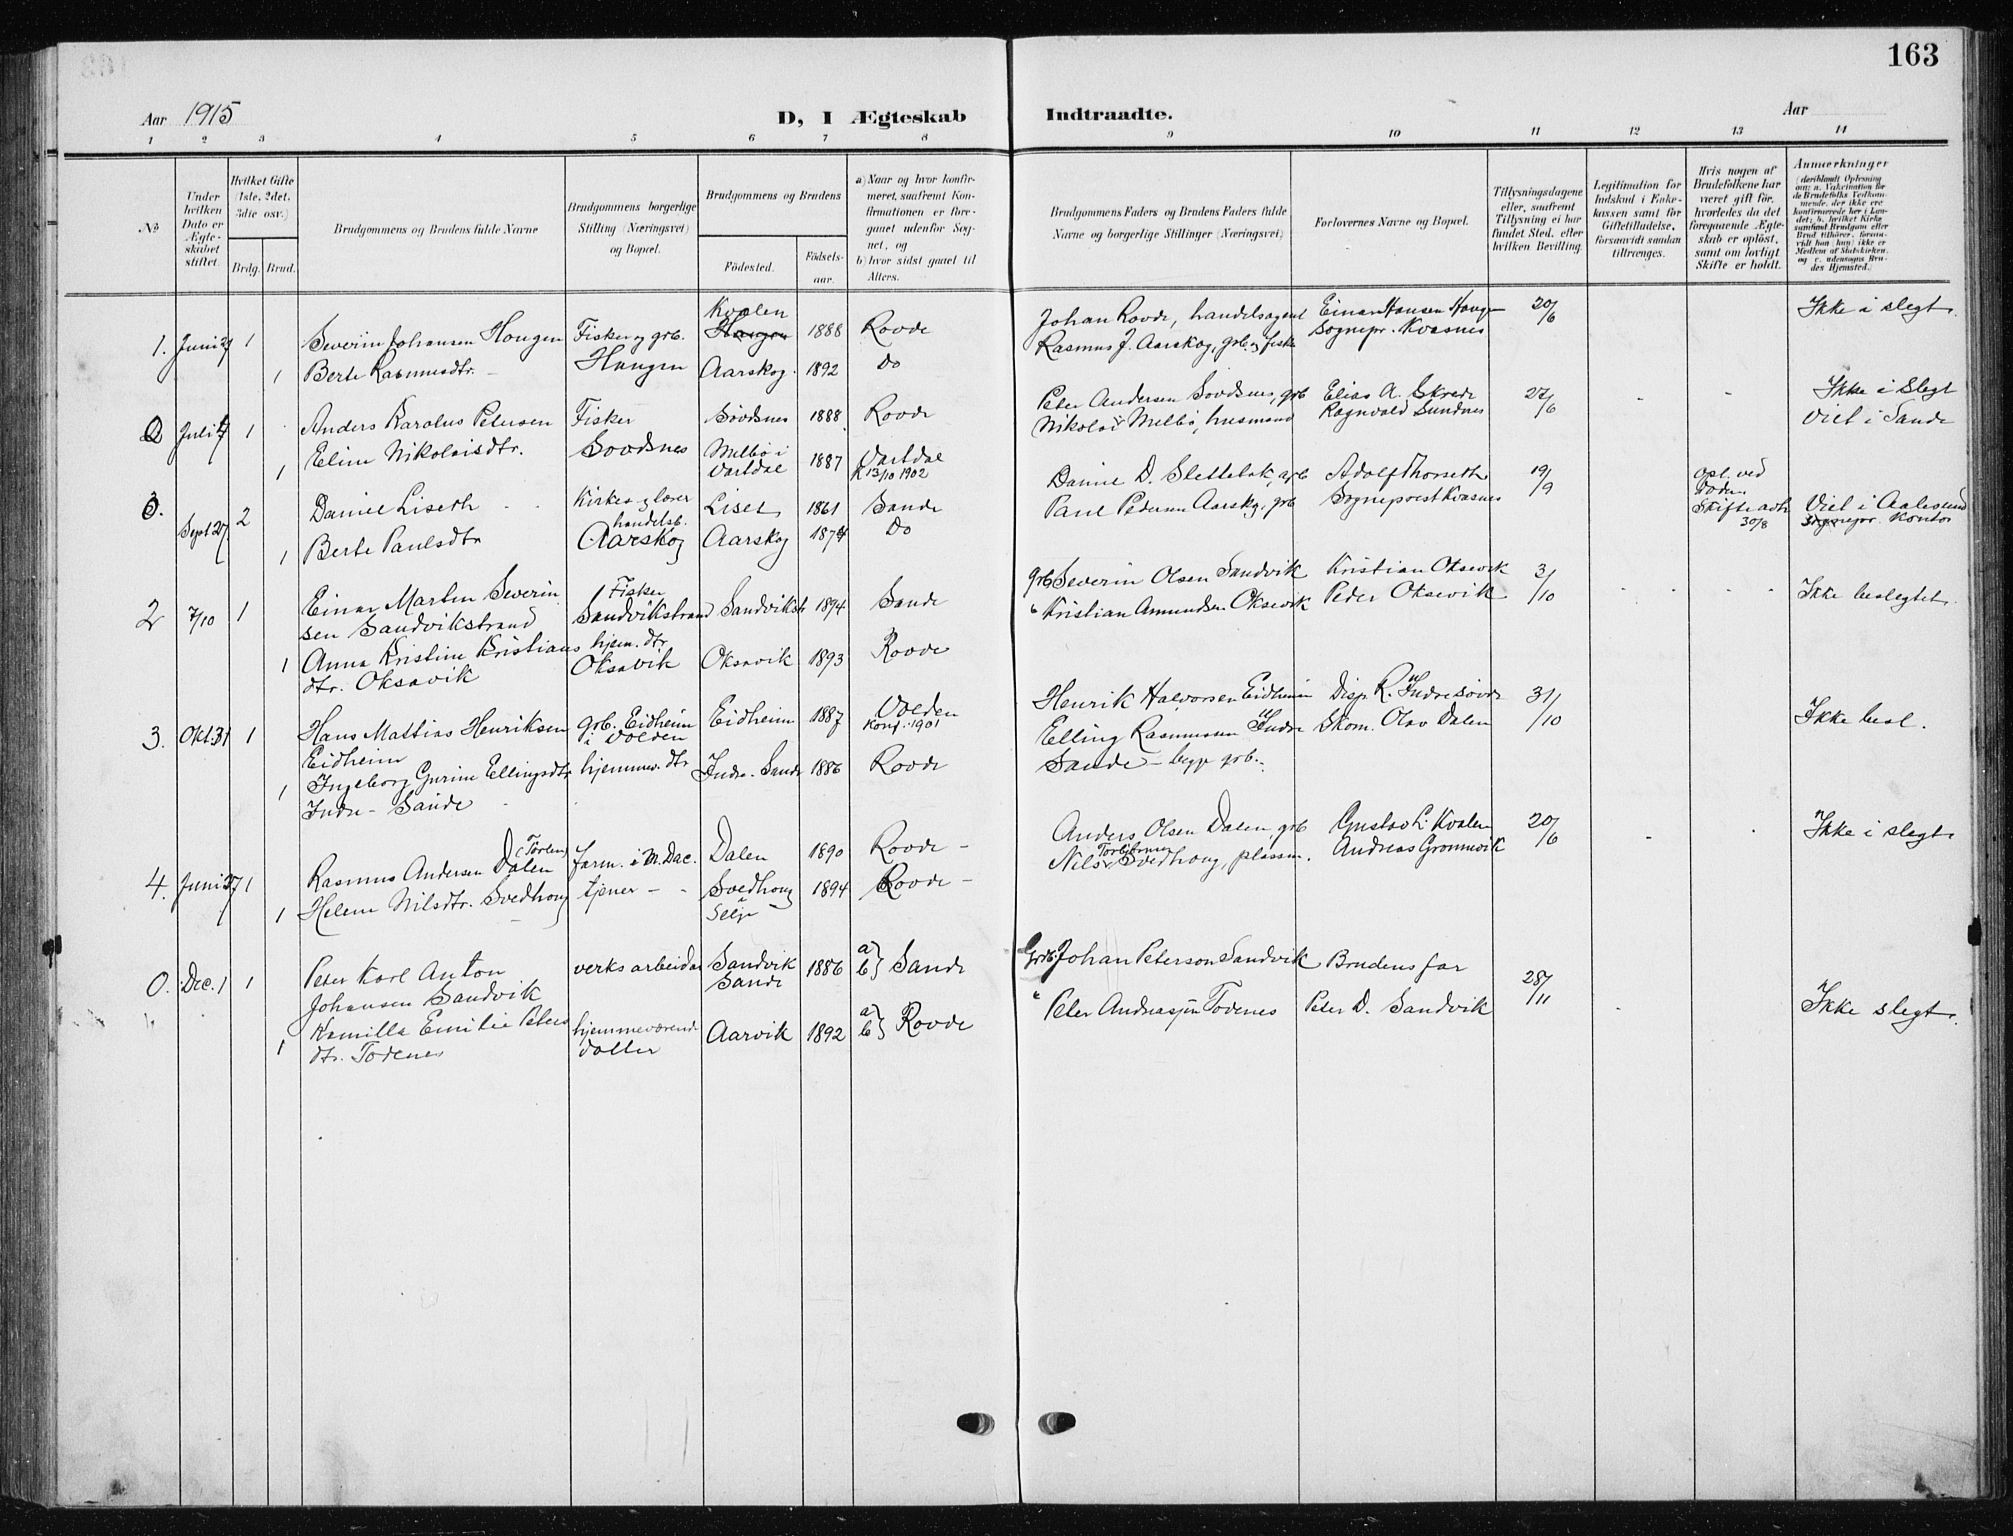 163
Aar 1915
D, I Ægteskab Indtraadte.
Aar
1 2 3 4 5 6 7 8 9 10 11 12 13 14
№
Under hvilken Dato er Ægteskabet stiftet.
Hvilket Gifte (1ste, 2det, 3die osv.)
Brdg. Brud.
Brudgommens og Brudens fulde Navne
Brudgommens borgerlige Stilling (Næringsvei) og Bopæl.
Brudgommens og Brudens
Fødested. Fødselsaar.
a) Naar og hvor konfirmeret, saafremt Konfirmationen er foregaaet udenfor Sognet, og
b) hvor sidst gaaet til Alters.
Brudgommens Faders og Brudens Faders fulde Navne og borgerlige Stillinger (Næringsvei)
Forlovernes Navne og Bopæl.
Tillysningsdagene eller, saafremt Tillysning ei har fundet Sted, efter hvilken Bevilling.
Legitimation for Indskud i Enkekassen samt for Giftetilladelse, forsaavidt saadan tiltrænges.
Hvis nogen af Brudefolkene har været gift før, hvorledes da det foregaaende Ægteskab er opløst, samt om lovligt Skifte er holdt.
Anmerkninger
(deriblandt Oplysning om: a. Vakcination for de Brudefolks Vedkommende, der ikke ere konfirmerede her i Landet; b. hvilket Kirkesamfund Brudgom eller Brud tilhører, forsaavidt han (hun) ikke er Medlem af Statskirken, og c. udensogns Brudes Hjemsted.)
1. Juni 27 1 Severin Johansen Haugen Fisker og grb. Kvalen Haugen 1888 Rovde Johan Rovde, handelsagent Einar Hansen Hauge 20/6 Ikke i slegt.
1 Berte Rasmusdtr. Haugen Aarskog 1892 Do Rasmus J. Aarskog, grb. og fisker Sognepr. Kvasnes
2 Juli 4 1 Anders Karolus Petersen Fisker Søvdsnes 1888 Rovde Peter Andersen Sovdsnes, grb Elias A. Skrede 27/6 Ikke i Slegt
1 Eline Nikolaisdtr. Sovdsnes Melbø i Vartdal 1887 Vartdal K 13/10 1902 Nikolai Melbø, husmand Ragnvald Sundnes Viet i Sande
3. Sept 27 2 Daniel Liseth Kirkes. og lærer Liset 1861 Sande Daniel D. Slettebak, grb Adolf Thorseth 19/9 opl. ved Døden
1 Berte Paulsdtr handelsb. Aarskog Aarskog 1874 Do Paul Pedersen Aarskog, grb Sogneprest Kvasnes Skifte adk. 30/8 Viet i Aalesund Sognepr. Kontor
2 7/10 1 Einar Martin Severinsen Sandvikstrand Fisker Sandvikstrand Sandvikstr 1894 Sande grb Severin Olsen Sandvik Kristian Oksevik 3/10 Ikke beslegtet
1 Anna Kristine Kristiansdtr. Oksavik hjem. dtr. Oksavik Oksavik 1893 Rovde " Kristian Amundsen Oksevik Peder Oksevik
3. Okt. 31 1 Hans Mattias Henriksen Eidheim grb. Eidheim i Volden Eidheim 1887 Volden Konf. 1901 Henrik Halvorsen Eidheim Disp. R. Indresøvde 31/10 Ikke besl.
1 Ingeborg Gurine Ellingsdtr Indre-Sande hjemmev. dtr Indre-Sande 1886 Rovde Elling Rasmussen Indre Sande - bygs. grb. Skom. Olav Dalen
4. Juni 27 1 Rasmus Andersen Dalen farm. i N. Dac. Dalen 1890 Rovde Anders Olsen Dalen, grb Gustav L. Kvalen 20/6 Ikke i slegt.
1 Helene Nilsdtr. Svedhoug tjener Svedhoug Selje 1894 Rovde Nils Torbjørnsen Svedhoug, plassm. Andreas Gromsvik
0. Dec. 1 1 Peter Karl Anton Johansen Sandvik verksarbeider Sandvik Sande 1886 a) b) Sande Grdb. Johan Peterson Sandvik Brudens far 28/11 Ikke slegt.
1 Kamilla Emilie Petersdtr. Tovenes hjemmeværende datter Aarvik 1892 a) b) Rovde " Peter Andreassen Tovenes Peter D. Sandvik